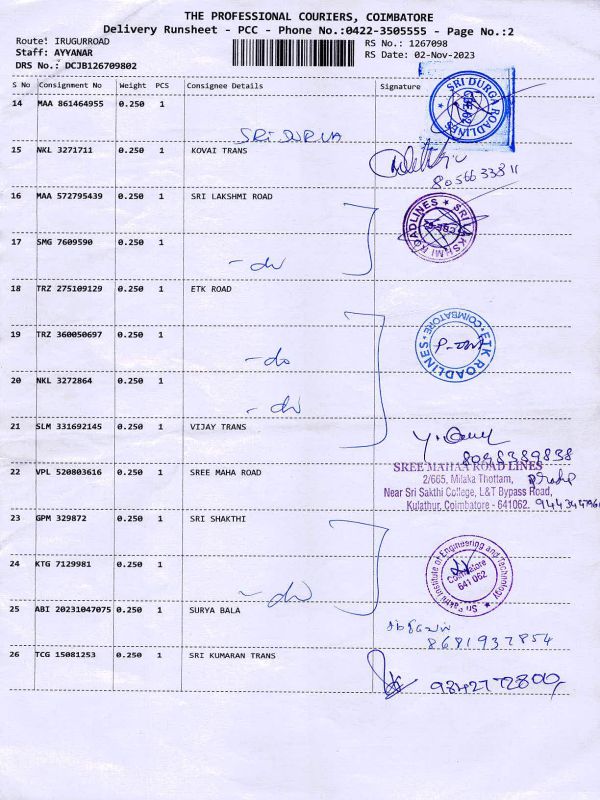 THE PROFESSIONAL COURIERS, COIMBATORE
Delivery Runsheet - PCC - Phone No.:0422-3505555 - Page No.:2
Route: IRUGURROAD
Staff: AYYANAR
DRS No.: DCJB126709802
RS No.: 1267098
RS Date: 02-Nov-2023
S No Consignment No Weight PCS Consignee Details Signature
14 MAA 861464955 0.250 1
SRI DURGA
SRI DURGA ROADLINES
15 NKL 3271711 0.250 1 KOVAI TRANS
8056633811
16 MAA 572795439 0.250 1 SRI LAKSHMI ROAD
SRI LAKSHMI ROADLINES
17 SMG 7609590 0.250 1
- do
18 TRZ 275109129 0.250 1 ETK ROAD
ETK ROADLINES COIMBATORE
19 TRZ 360050697 0.250 1
- do
20 NKL 3272864 0.250 1
- do
21 SLM 331692145 0.250 1 VIJAY TRANS
22 VPL 520803616 0.250 1 SREE MAHA ROAD
SREE MAHAA ROAD LINES
2/665, Milaka Thottam,
Near Sri Sakthi College, L&T Bypass Road,
Kulathur, Coimbatore - 641062.
23 GPM 329872 0.250 1 SRI SHAKTHI
24 KTG 7129981 0.250 1
- do
Sri Shakthi Institute of Engineering and Technology
Coimbatore
641 062
25 ABI 20231047075 0.250 1 SURYA BALA
8681937854
26 TCG 15081253 0.250 1 SRI KUMARAN TRANS
9842772800/-